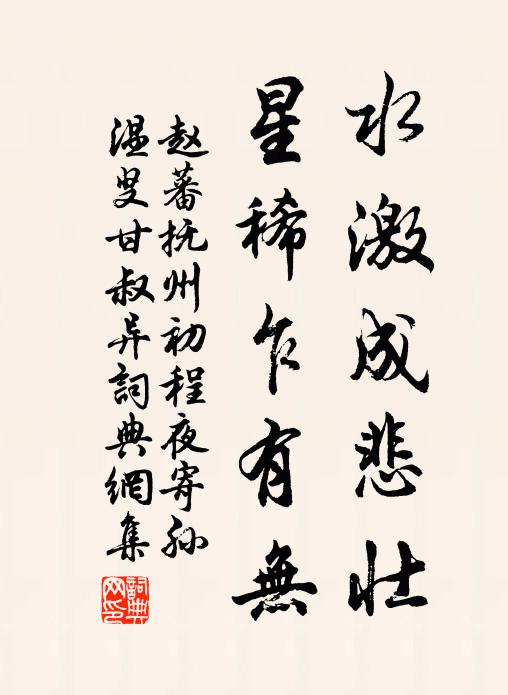 水激成悲壮
星稀乍有無
赵蕃抚州初程夜寄孙
温叟甘叔异詞典網集
詞典
网印